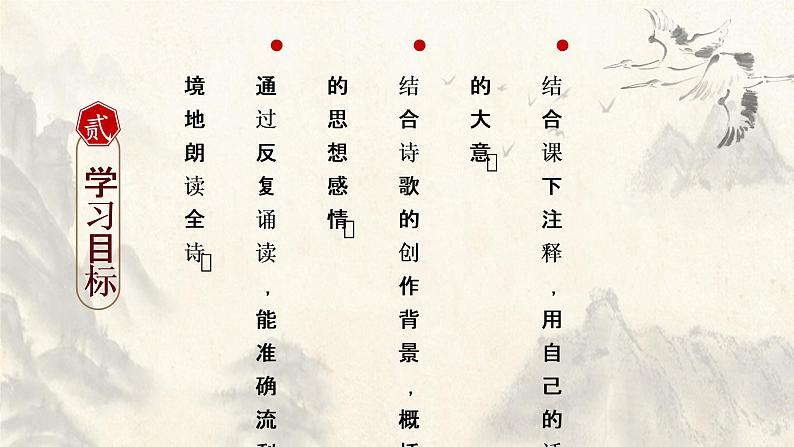 贰
学习目标
结合课下注释，用自己的
的大意
结合诗歌的创作背景，概
的思想感情
通过反复诵读，能准确流
境地朗读全诗